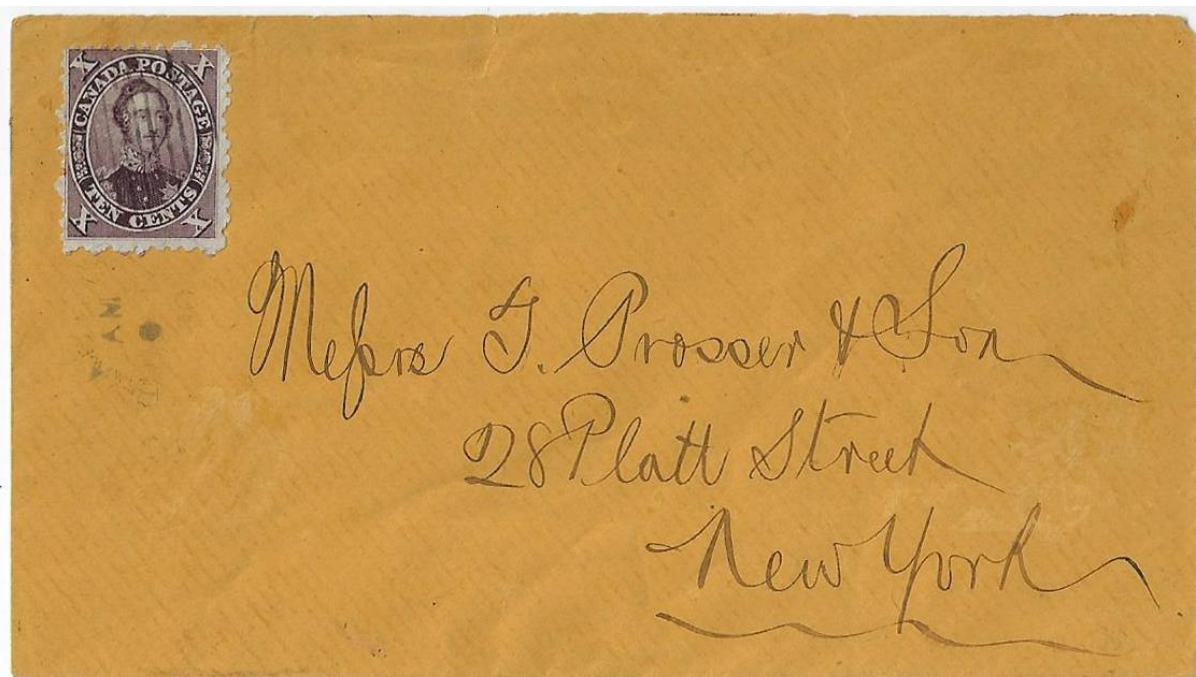 X X
CANADA POSTAGE
TEN CENTS
X X
Messrs T. Prosser & Son
28 Platt Street
New York